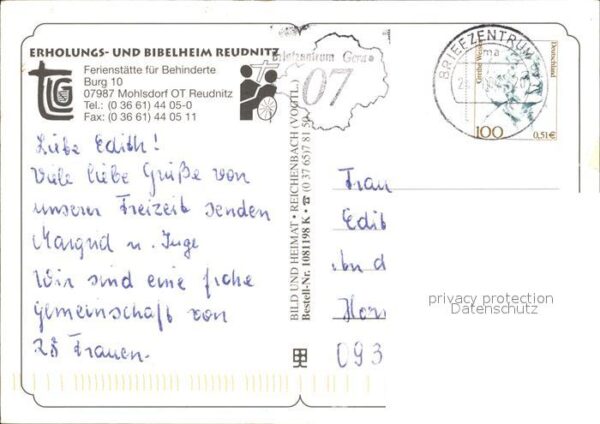 ERHOLUNGS- UND BIBELHEIM REUDNITZ
Ferienstätte für Behinderte
Burg 10
07987 Mohlsdorf OT Reudnitz
Tel.: (0 36 61) 44 05-0
Fax: (0 36 61) 44 05 11
Briefzentrum Gera
07
BRIEFZENTRUM
Deutschland
100
0,51€
Liebe Edith!
Viele liebe Grüße von
unserer Freizeit senden
Margrid u. Inge
Wir sind eine frohe
Gemeinschaft von
28 Frauen.
BILD UND HEIMAT • REICHENBACH (VOGTL.)
Bestell-Nr. 1081198 K • ☎ (0 37 65) 7 81 50
Frau
Edit
An d
Hers
093
privacy protection
Datenschutz